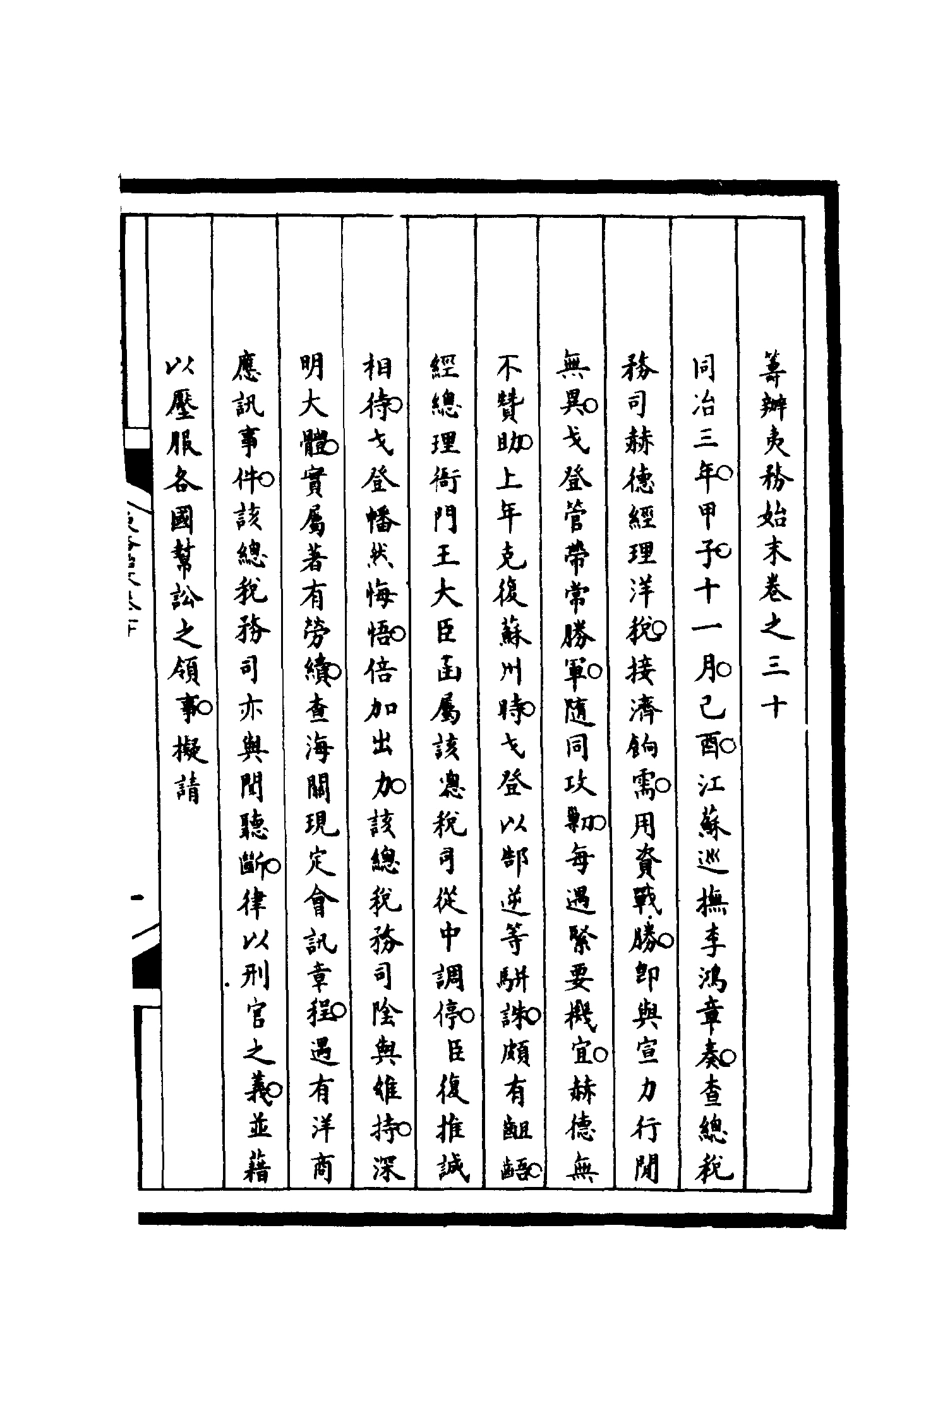 籌辦夷務始末卷之三十
同治三年。甲子。十一月。己酉。江蘇巡撫李鴻章奏。查總稅
務司赫德經理洋稅。接濟餉需。用資戰勝。卽與宣力行閒
無異。戈登管帶常勝軍。隨同攻剿。每遇緊要機宜。赫德無
不贊助。上年克復蘇州時。戈登以郜逆等駢誅。頗有齟齬。
經總理衙門王大臣函屬該總稅司從中調停。臣復推誠
相待。戈登幡然悔悟。倍加出力。該總稅務司陰與維持。深
明大體。實屬著有勞績。查海關現定會訊章程。遇有洋商
應訊事件。該總稅務司亦與聞聽斷。律以刑官之義。並藉
以壓服各國幫訟之領事。擬請